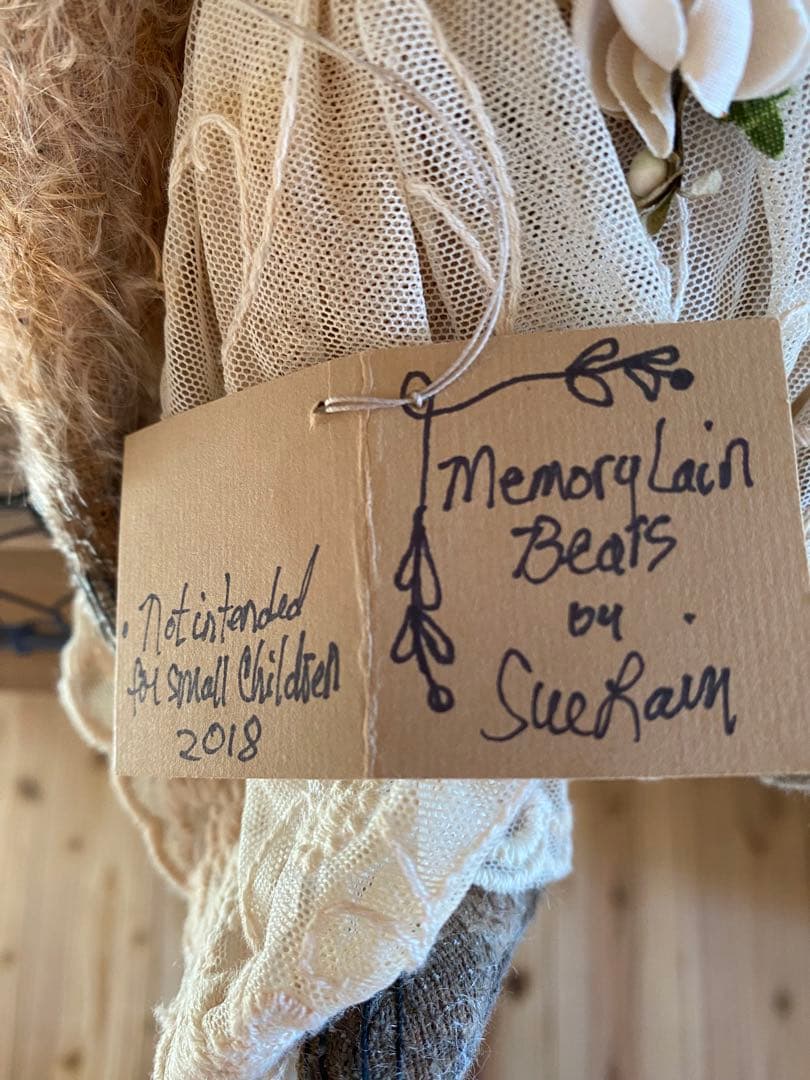 Not intended
for small Children
2018
Memory Lain
Bears
by
Sue Lain